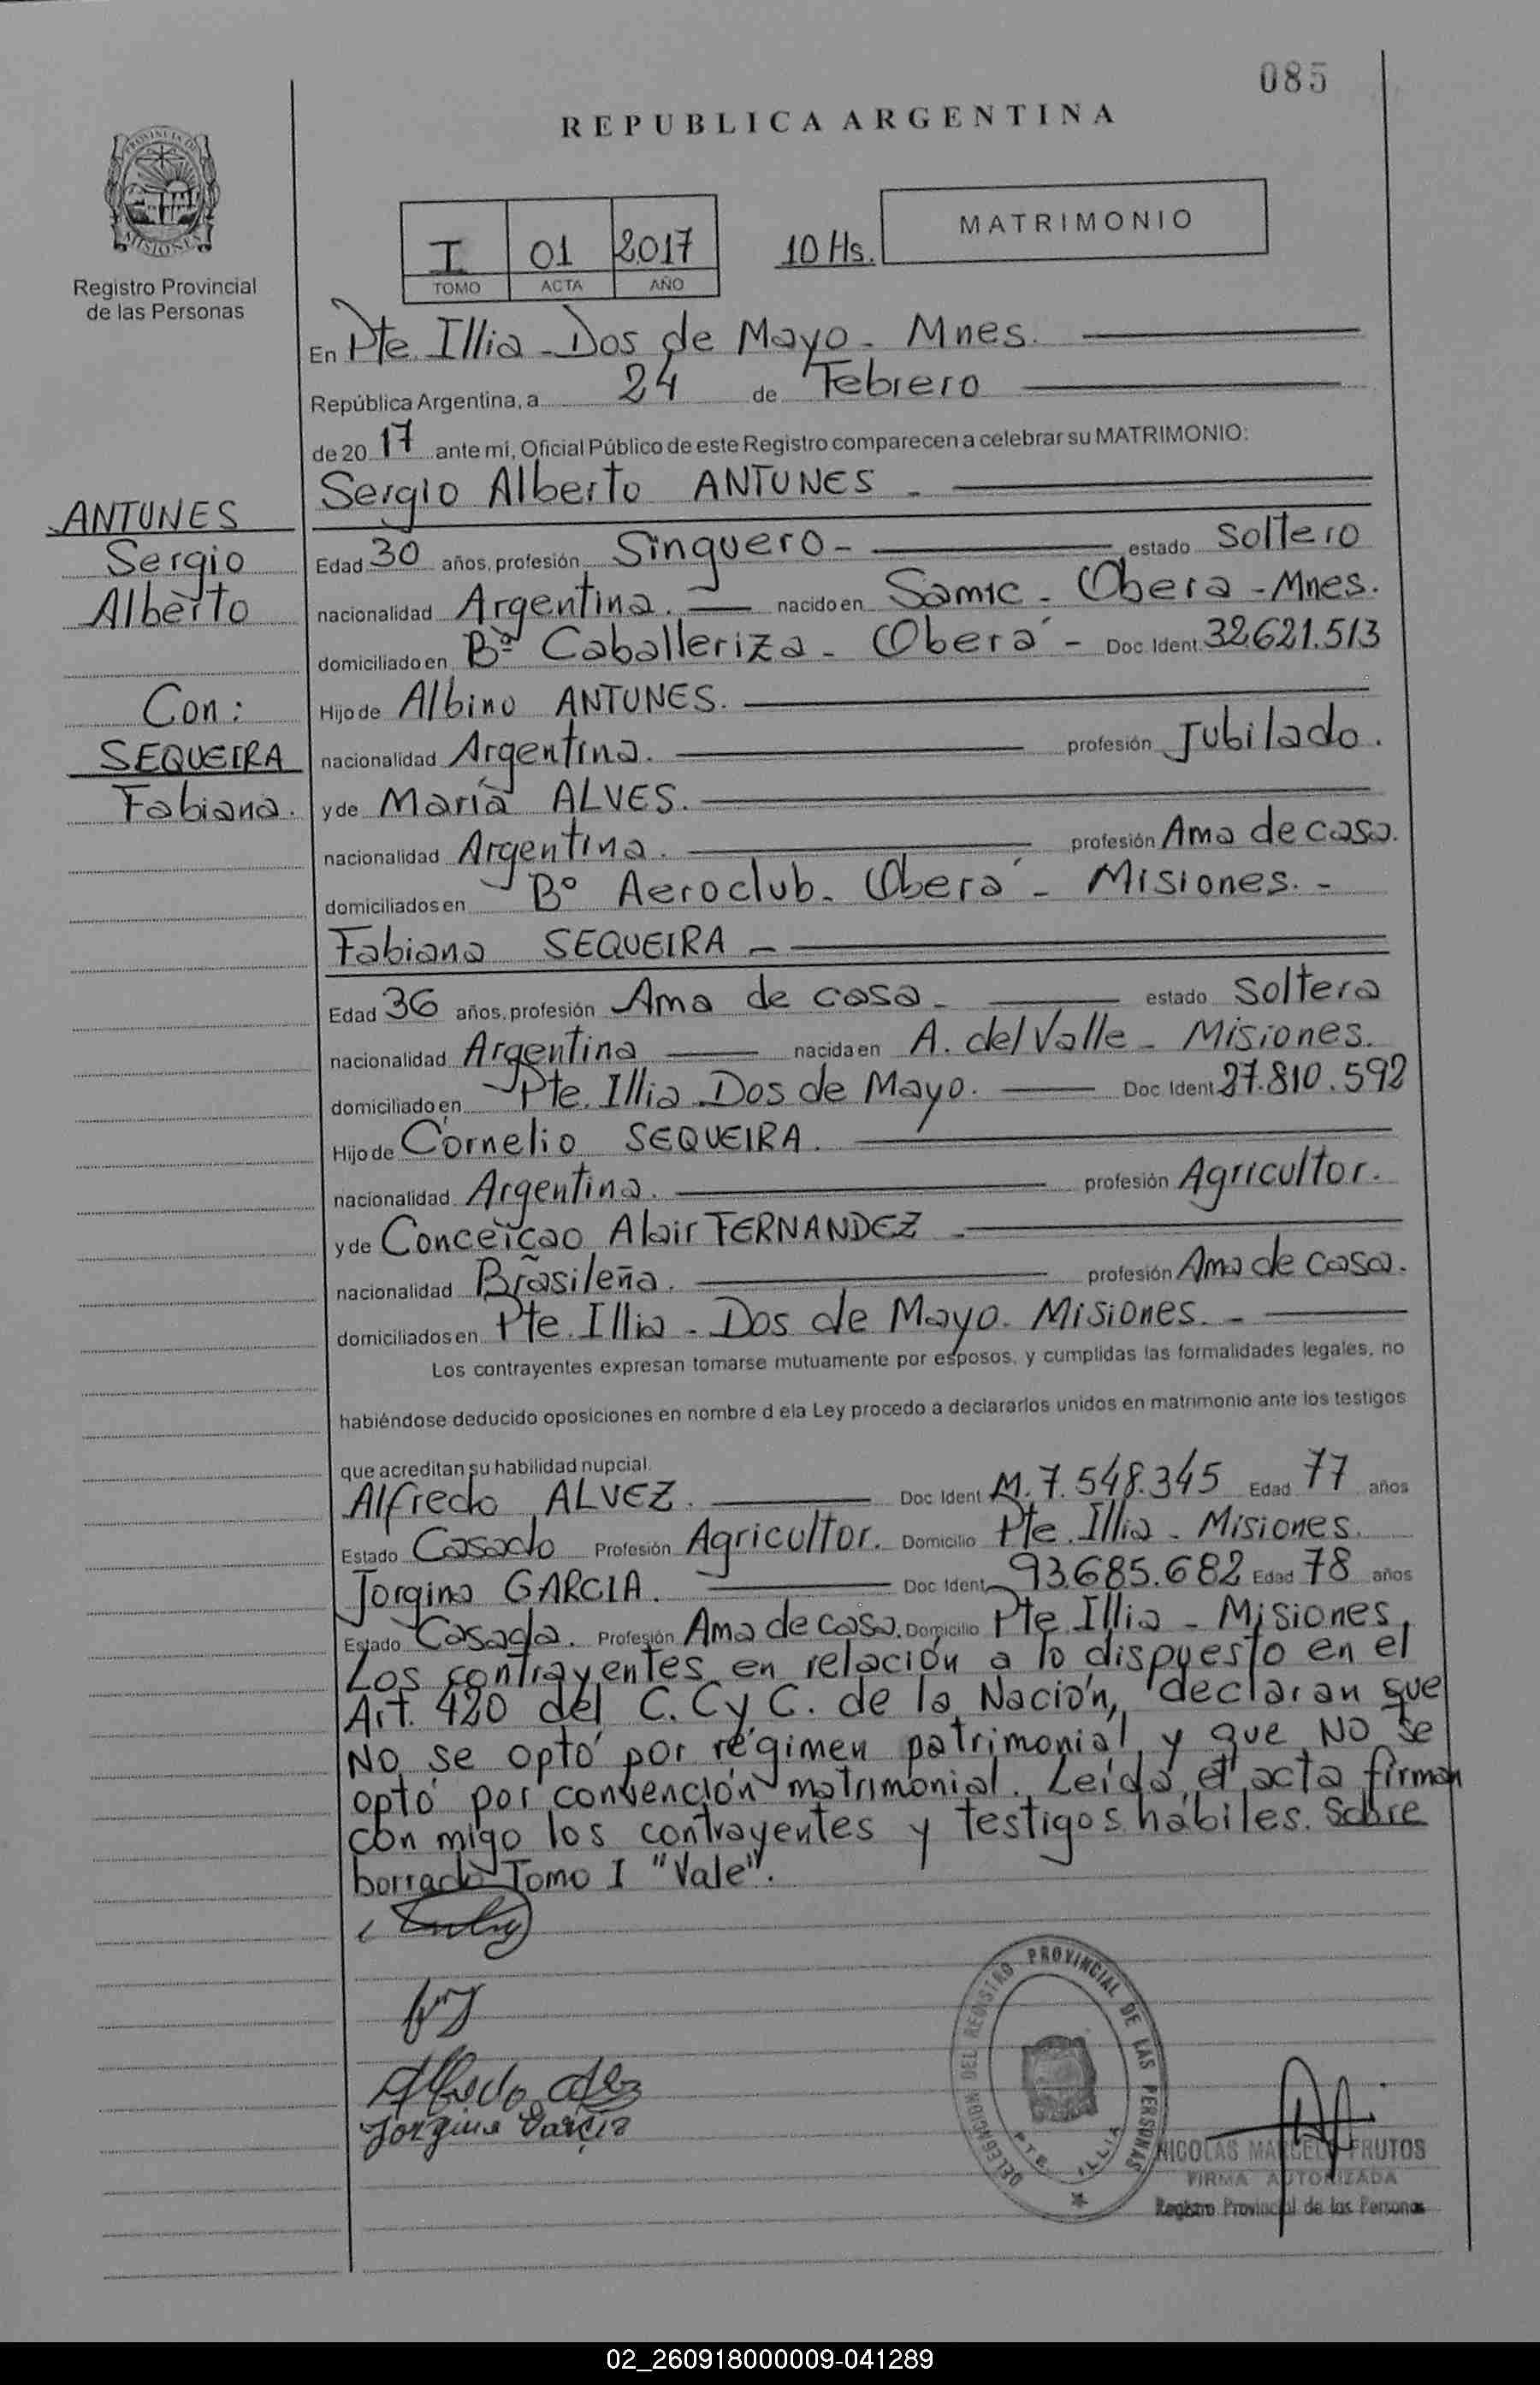 085
REPUBLICA ARGENTINA
PROVINCIA DE
MISIONES
Registro Provincial
de las Personas
I 01 2017
TOMO ACTA AÑO
10 Hs.
MATRIMONIO
En Pte. Illia - Dos de Mayo - Mnes.
República Argentina, a 24 de Febrero
de 20 17 ante mi, Oficial Público de este Registro comparecen a celebrar su MATRIMONIO:
Sergio Alberto ANTUNES -
ANTUNES
Sergio
Alberto
Con:
SEQUEIRA
Fabiana.
Edad 30 años, profesión Singuero - estado Soltero
nacionalidad Argentina. nacido en Samic - Obera - Mnes.
domiciliado en Bº Caballeriza - Oberá - Doc. Ident. 32.621.513
Hijo de Albino ANTUNES.
nacionalidad Argentina. profesión Jubilado.
y de María ALVES.
nacionalidad Argentina. profesión Ama de casa.
domiciliados en Bº Aeroclub - Oberá - Misiones. -
Fabiana SEQUEIRA -
Edad 36 años, profesión Ama de casa - estado Soltera
nacionalidad Argentina nacida en A. del Valle - Misiones.
domiciliado en Pte. Illia - Dos de Mayo. Doc. Ident. 27.810.592
Hijo de Cornelio SEQUEIRA.
nacionalidad Argentina. profesión Agricultor.
y de Conceiçao Alair FERNANDEZ -
nacionalidad Brasileña. profesión Ama de casa.
domiciliados en Pte. Illia - Dos de Mayo. Misiones. -
Los contrayentes expresan tomarse mutuamente por esposos, y cumplidas las formalidades legales, no
habiéndose deducido oposiciones en nombre d ela Ley procedo a declararlos unidos en matrimonio ante los testigos
que acreditan su habilidad nupcial.
Alfredo ALVEZ. Doc. Ident. M. 7.548.345 Edad 77 años
Estado Casado Profesión Agricultor. Domicilio Pte. Illia - Misiones.
Jorgina GARCIA. Doc. Ident. 93.685.682 Edad 78 años
Estado Casada. Profesión Ama de casa. Domicilio Pte. Illia - Misiones.
Los contrayentes en relación a lo dispuesto en el
Art. 420 del C. C y C. de la Nación, declaran que
NO se optó por régimen patrimonial y que NO se
optó por convención matrimonial. Leída el acta firman
con migo los contrayentes y testigos hábiles. Sobre
borrado Tomo I "Vale".
Alfredo Alvez
Jorgina Garcia
DELEGACION DEL REGISTRO PROVINCIAL DE LAS PERSONAS
PTE. ILLIA
NICOLAS MARCELO FRUTOS
FIRMA AUTORIZADA
Registro Provincial de las Personas
02_260918000009-041289